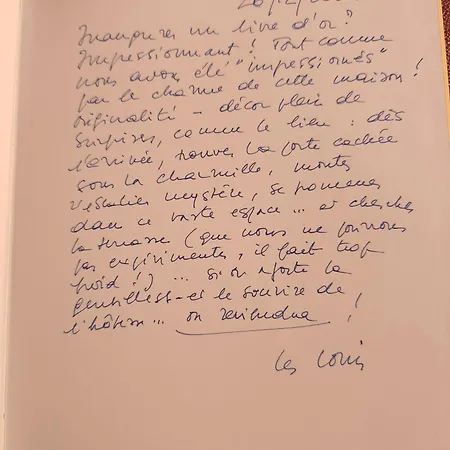 Inaugurer un livre d'or ?
Impressionnant ! Tout comme
nous avons été "impressionnés"
par le charme de cette maison !
originalité - décor plein de
surprises, comme le lieu : dès
l'arrivée, trouver la porte cachée
sous la charmille, monter
l'escalier mystère, se promener
dans ce vaste espace ... et chercher
la terrasse (que nous ne pouvons
pas expérimenter, il fait trop
froid !) ... si on ajoute la
gentillesse et le sourire de
l'hôtesse ... on reviendra !
Les